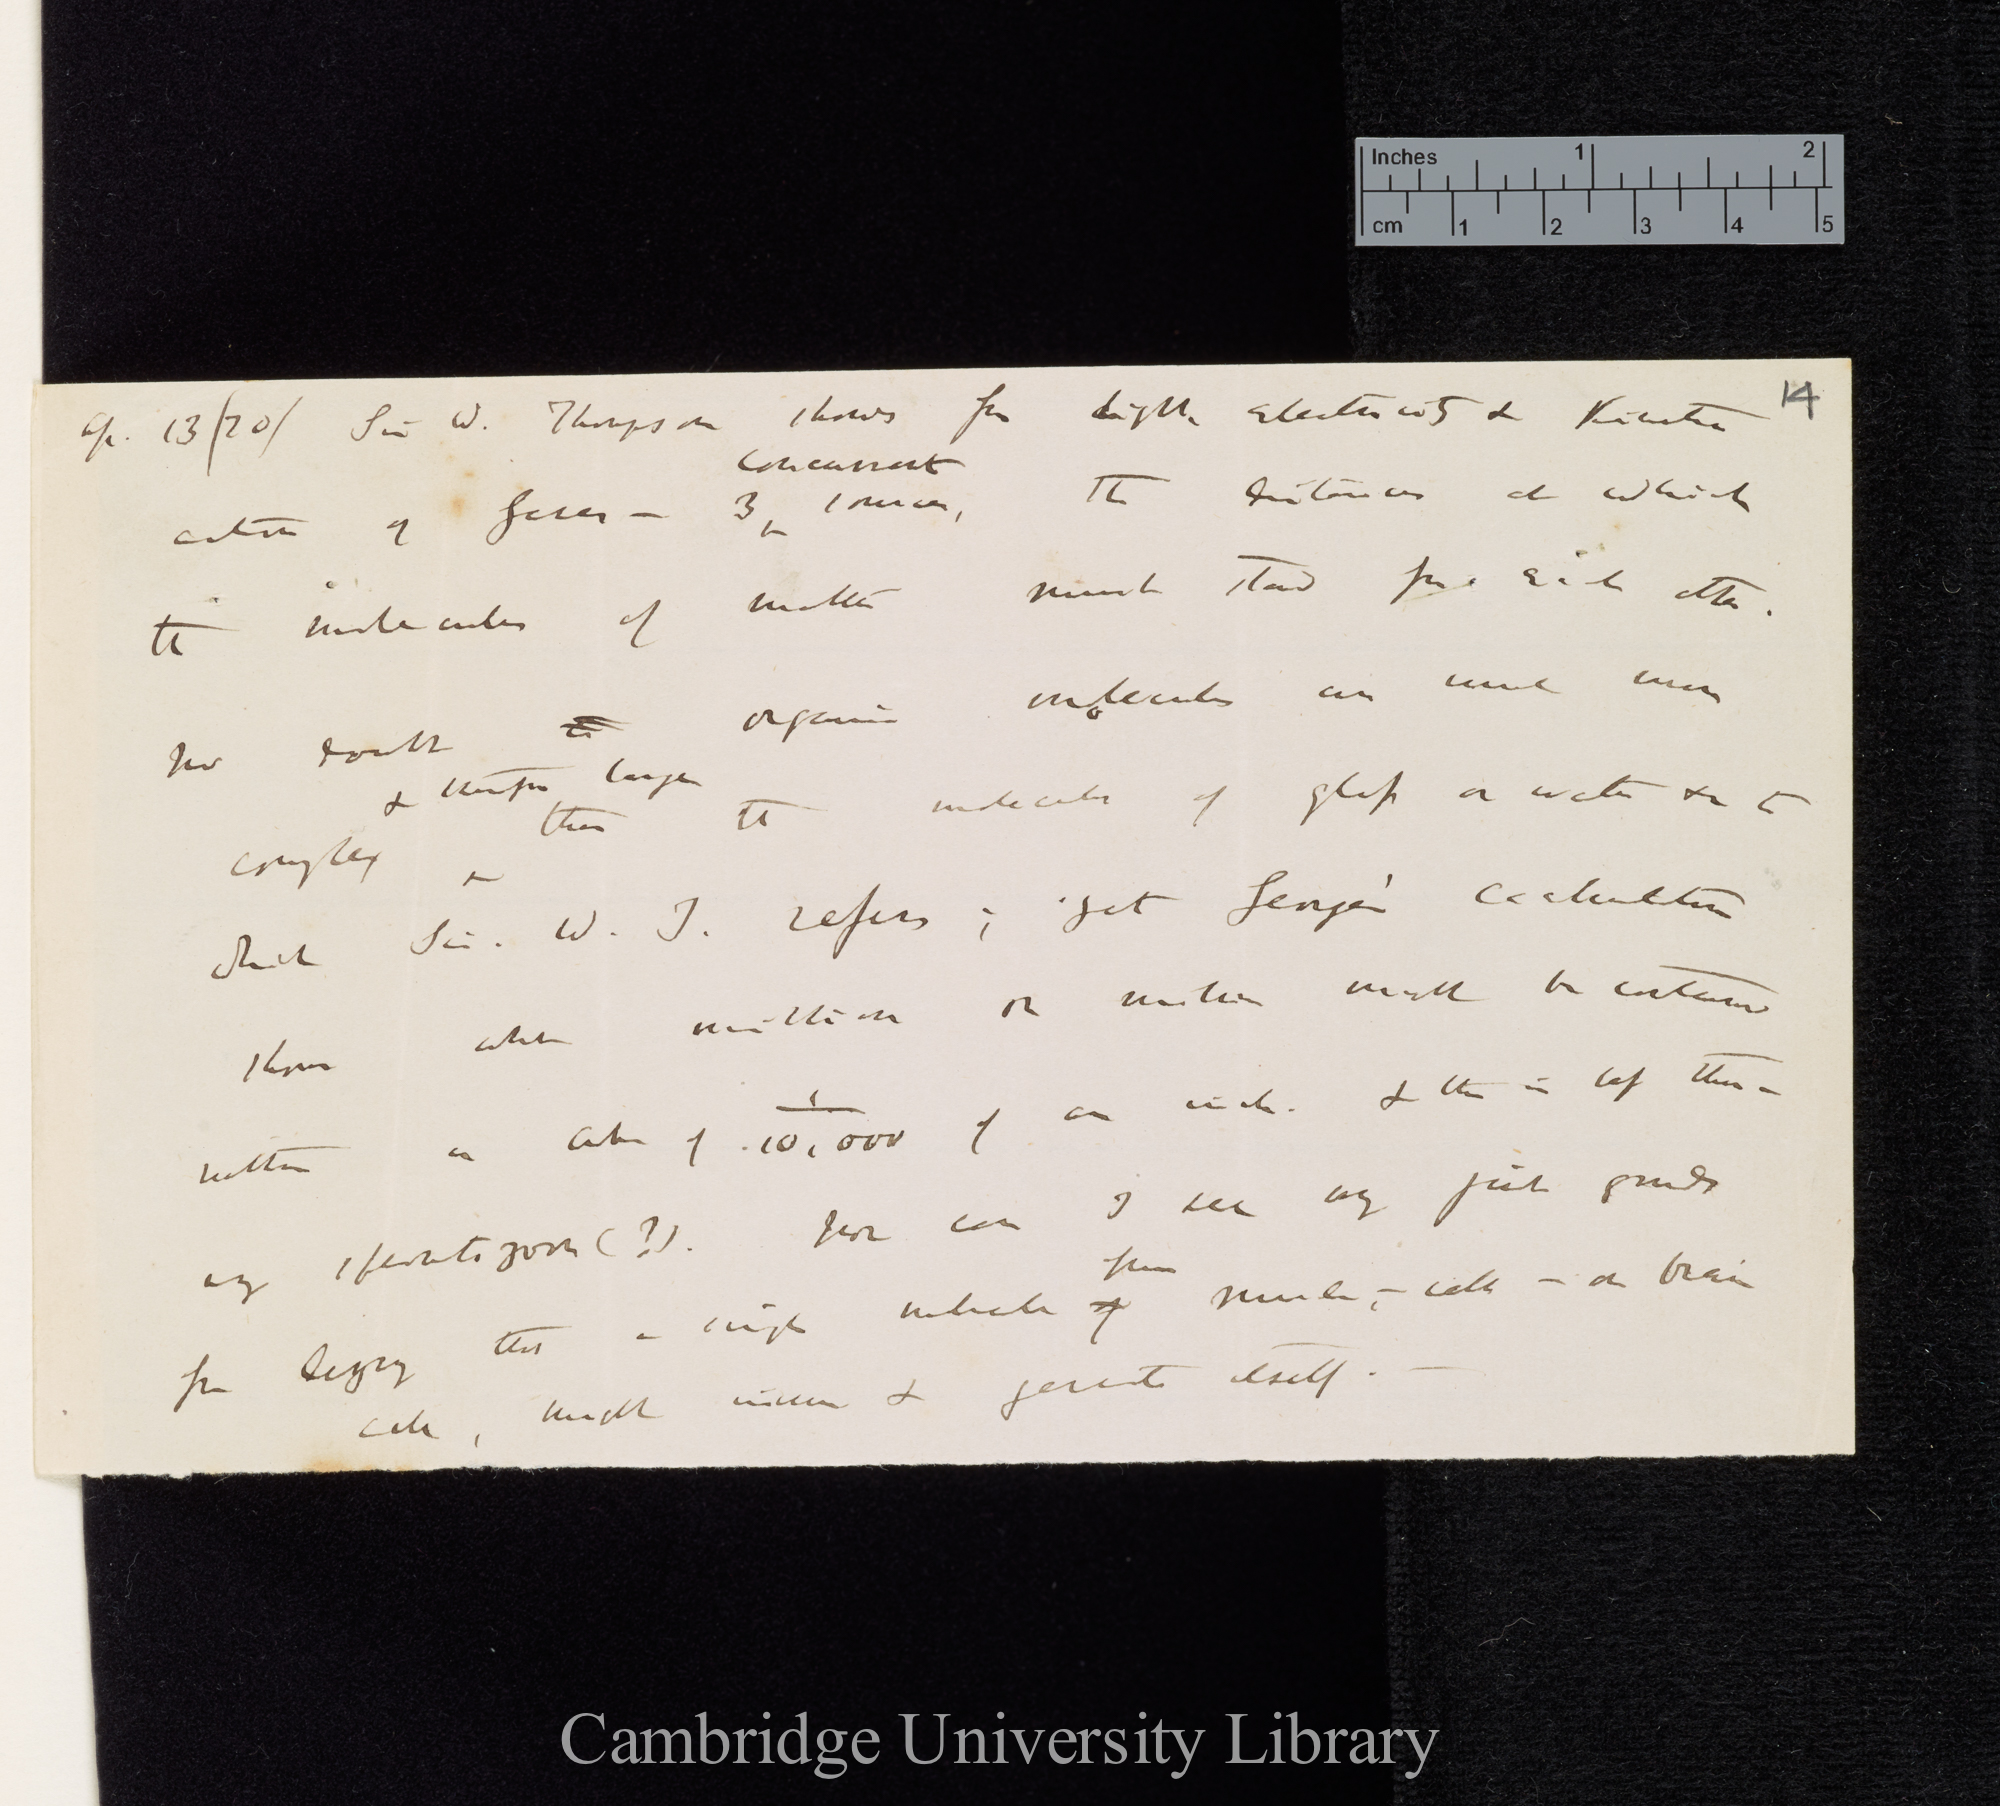 Inches 1 2
cm 1 2 3 4 5
14
Ap. 13/70/ Sir W. Thompson shows from Light electricity & Kinetic
concurrent
action of gases — 3 sources, the distances at which
the molecules of matter must stand from each other.
No doubt organic molecules are much more
& therefore larger
complex than the molecules of glass or water &c to
which Sir. W. T. refers; yet George's calculation
shows what million on million might be contained
within a cube of 1/10,000 of an inch. & this is less than a
any spermatozoon (?). Nor can I see any just grounds
from
for denying that a single molecule of muscle, — cell — or brain
cell, might increase & generate itself. —
Cambridge University Library